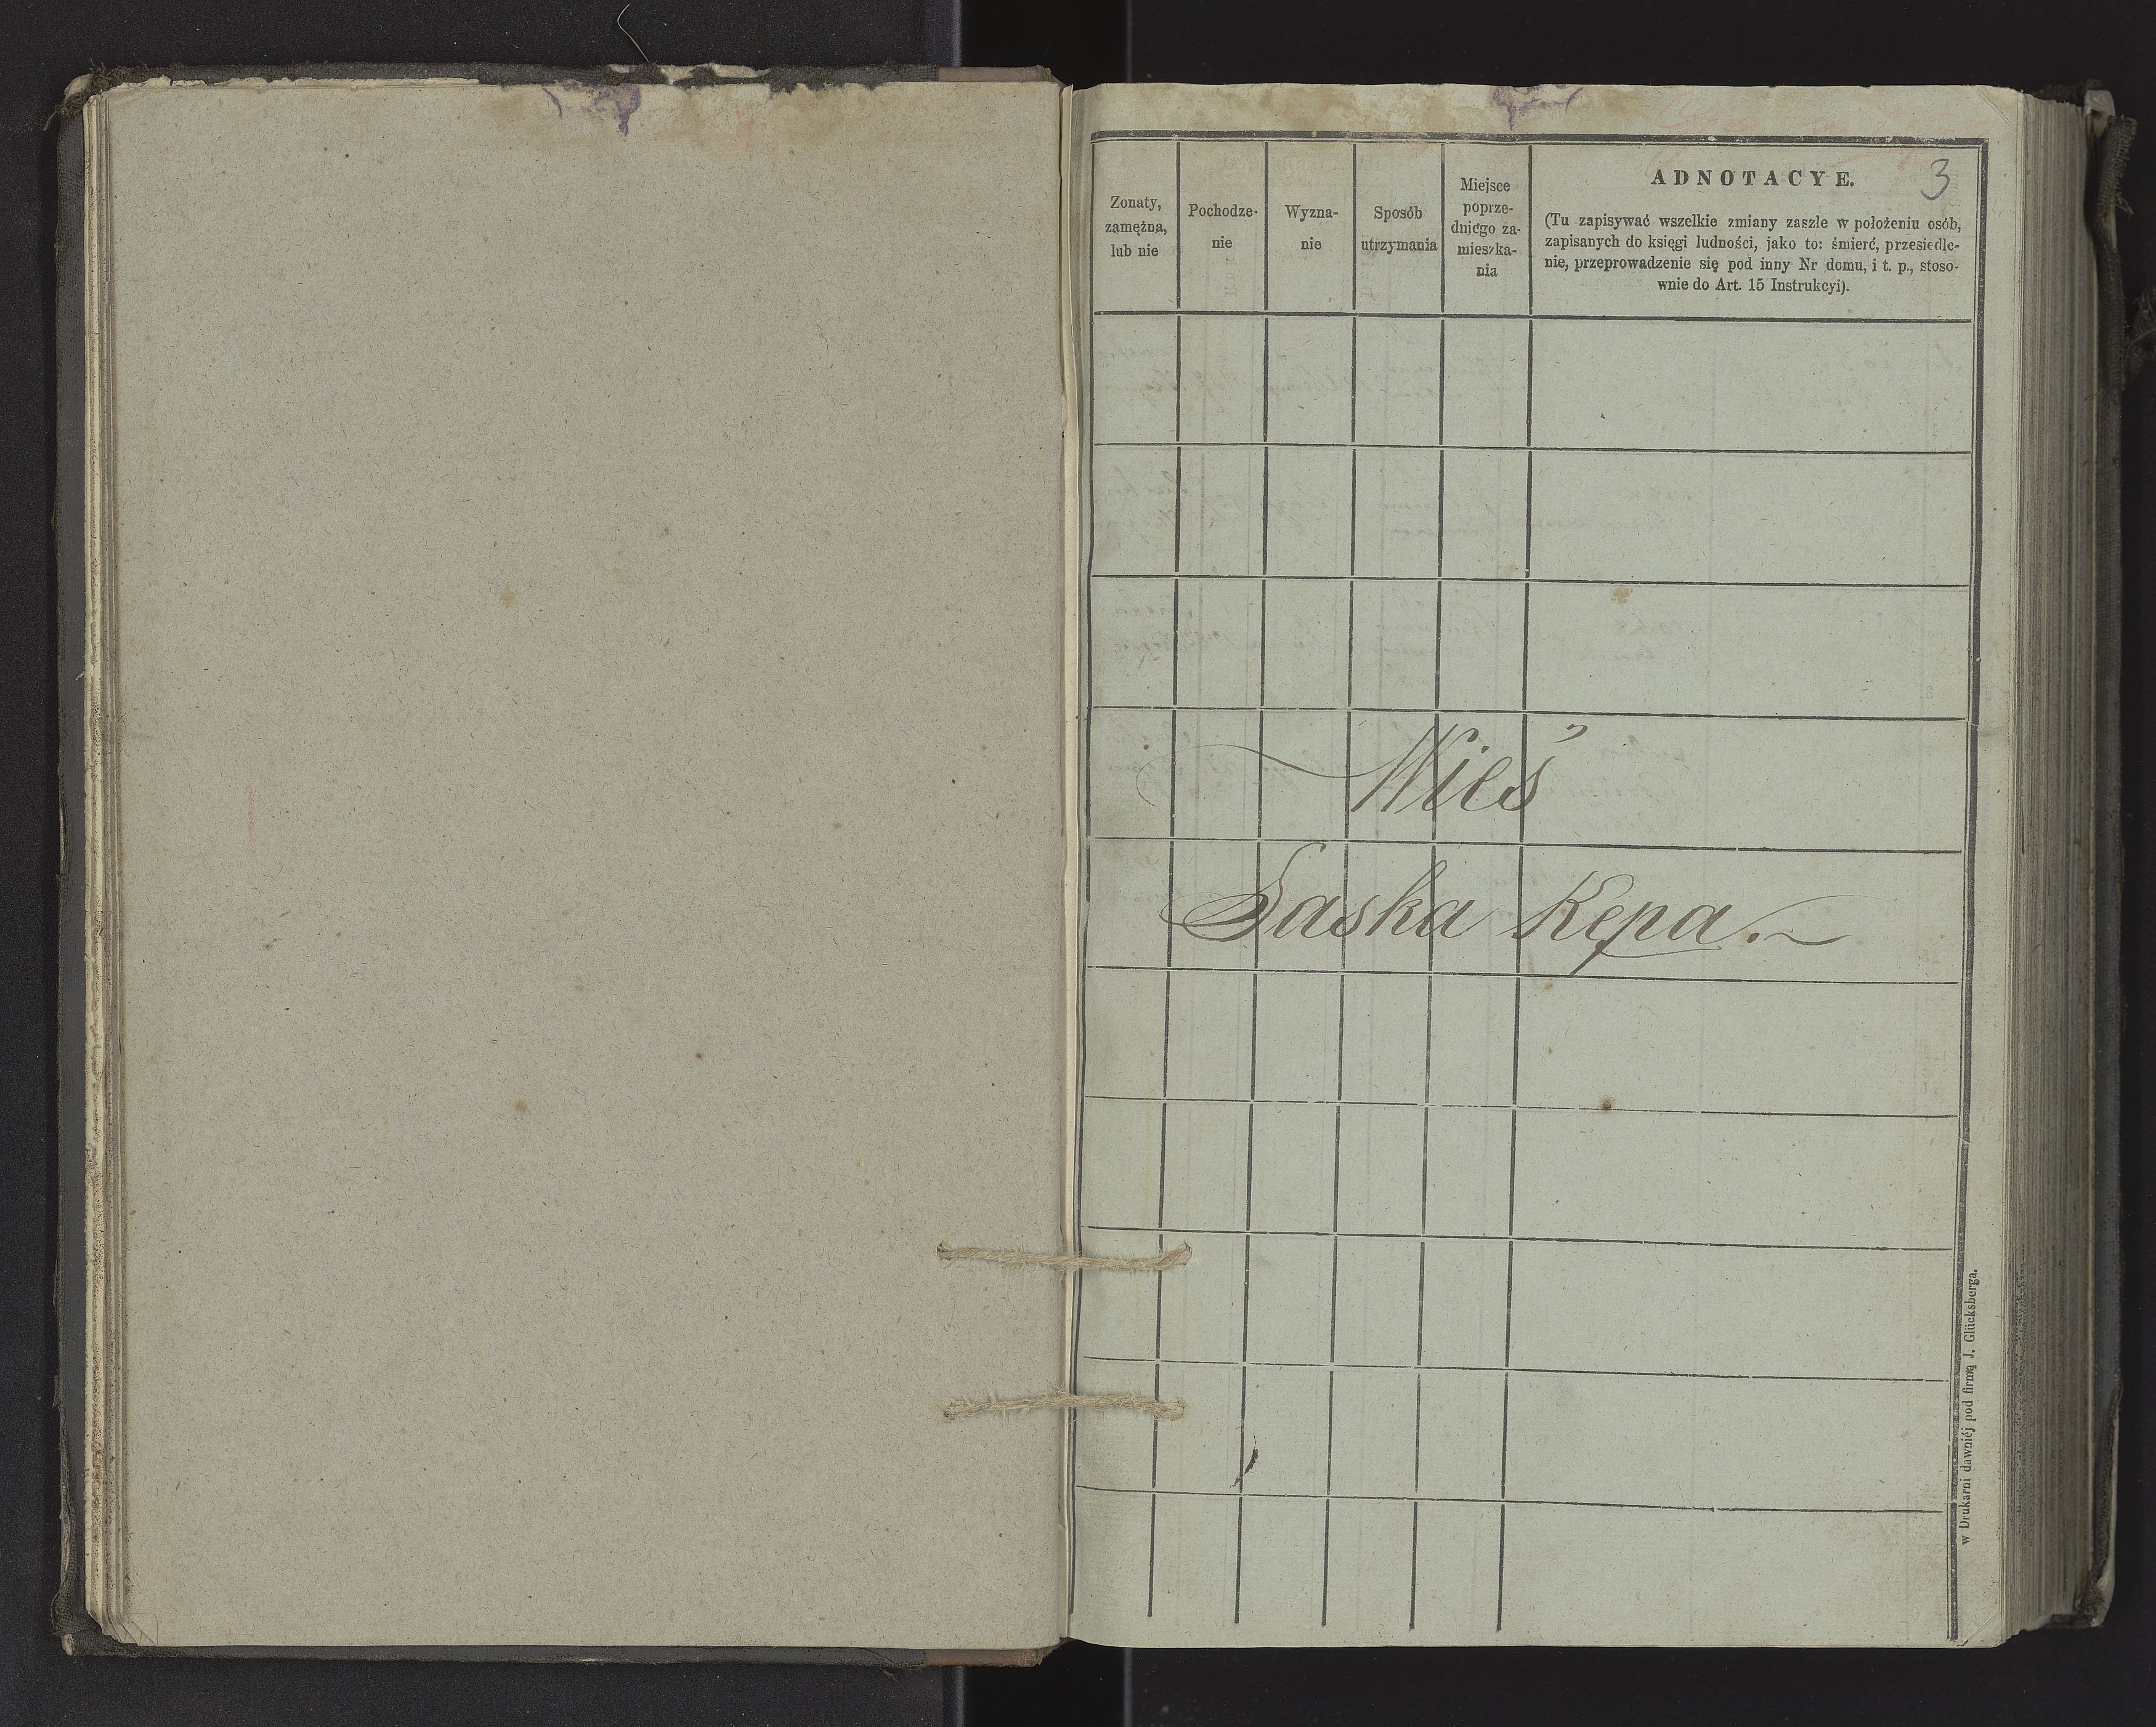 Zonaty,
zamężna,
lub nie
Pochodze-
nie
Wyzna-
nie
Sposób
utrzymania
Miejsce
poprze-
dniégo za-
mieszka-
nia
ADNOTACYE.
3
(Tu zapisywać wszelkie zmiany zaszłe w położeniu osób,
zapisanych do księgi ludności, jako to: śmierć, przesiedle-
nie, przeprowadzenie się pod inny Nr domu, i t. p., stoso-
wnie do Art. 15 Instrukcyi).
Wieś
Saska Kępa.
w Drukarni dawniéj pod firmą J. Glücksberga.